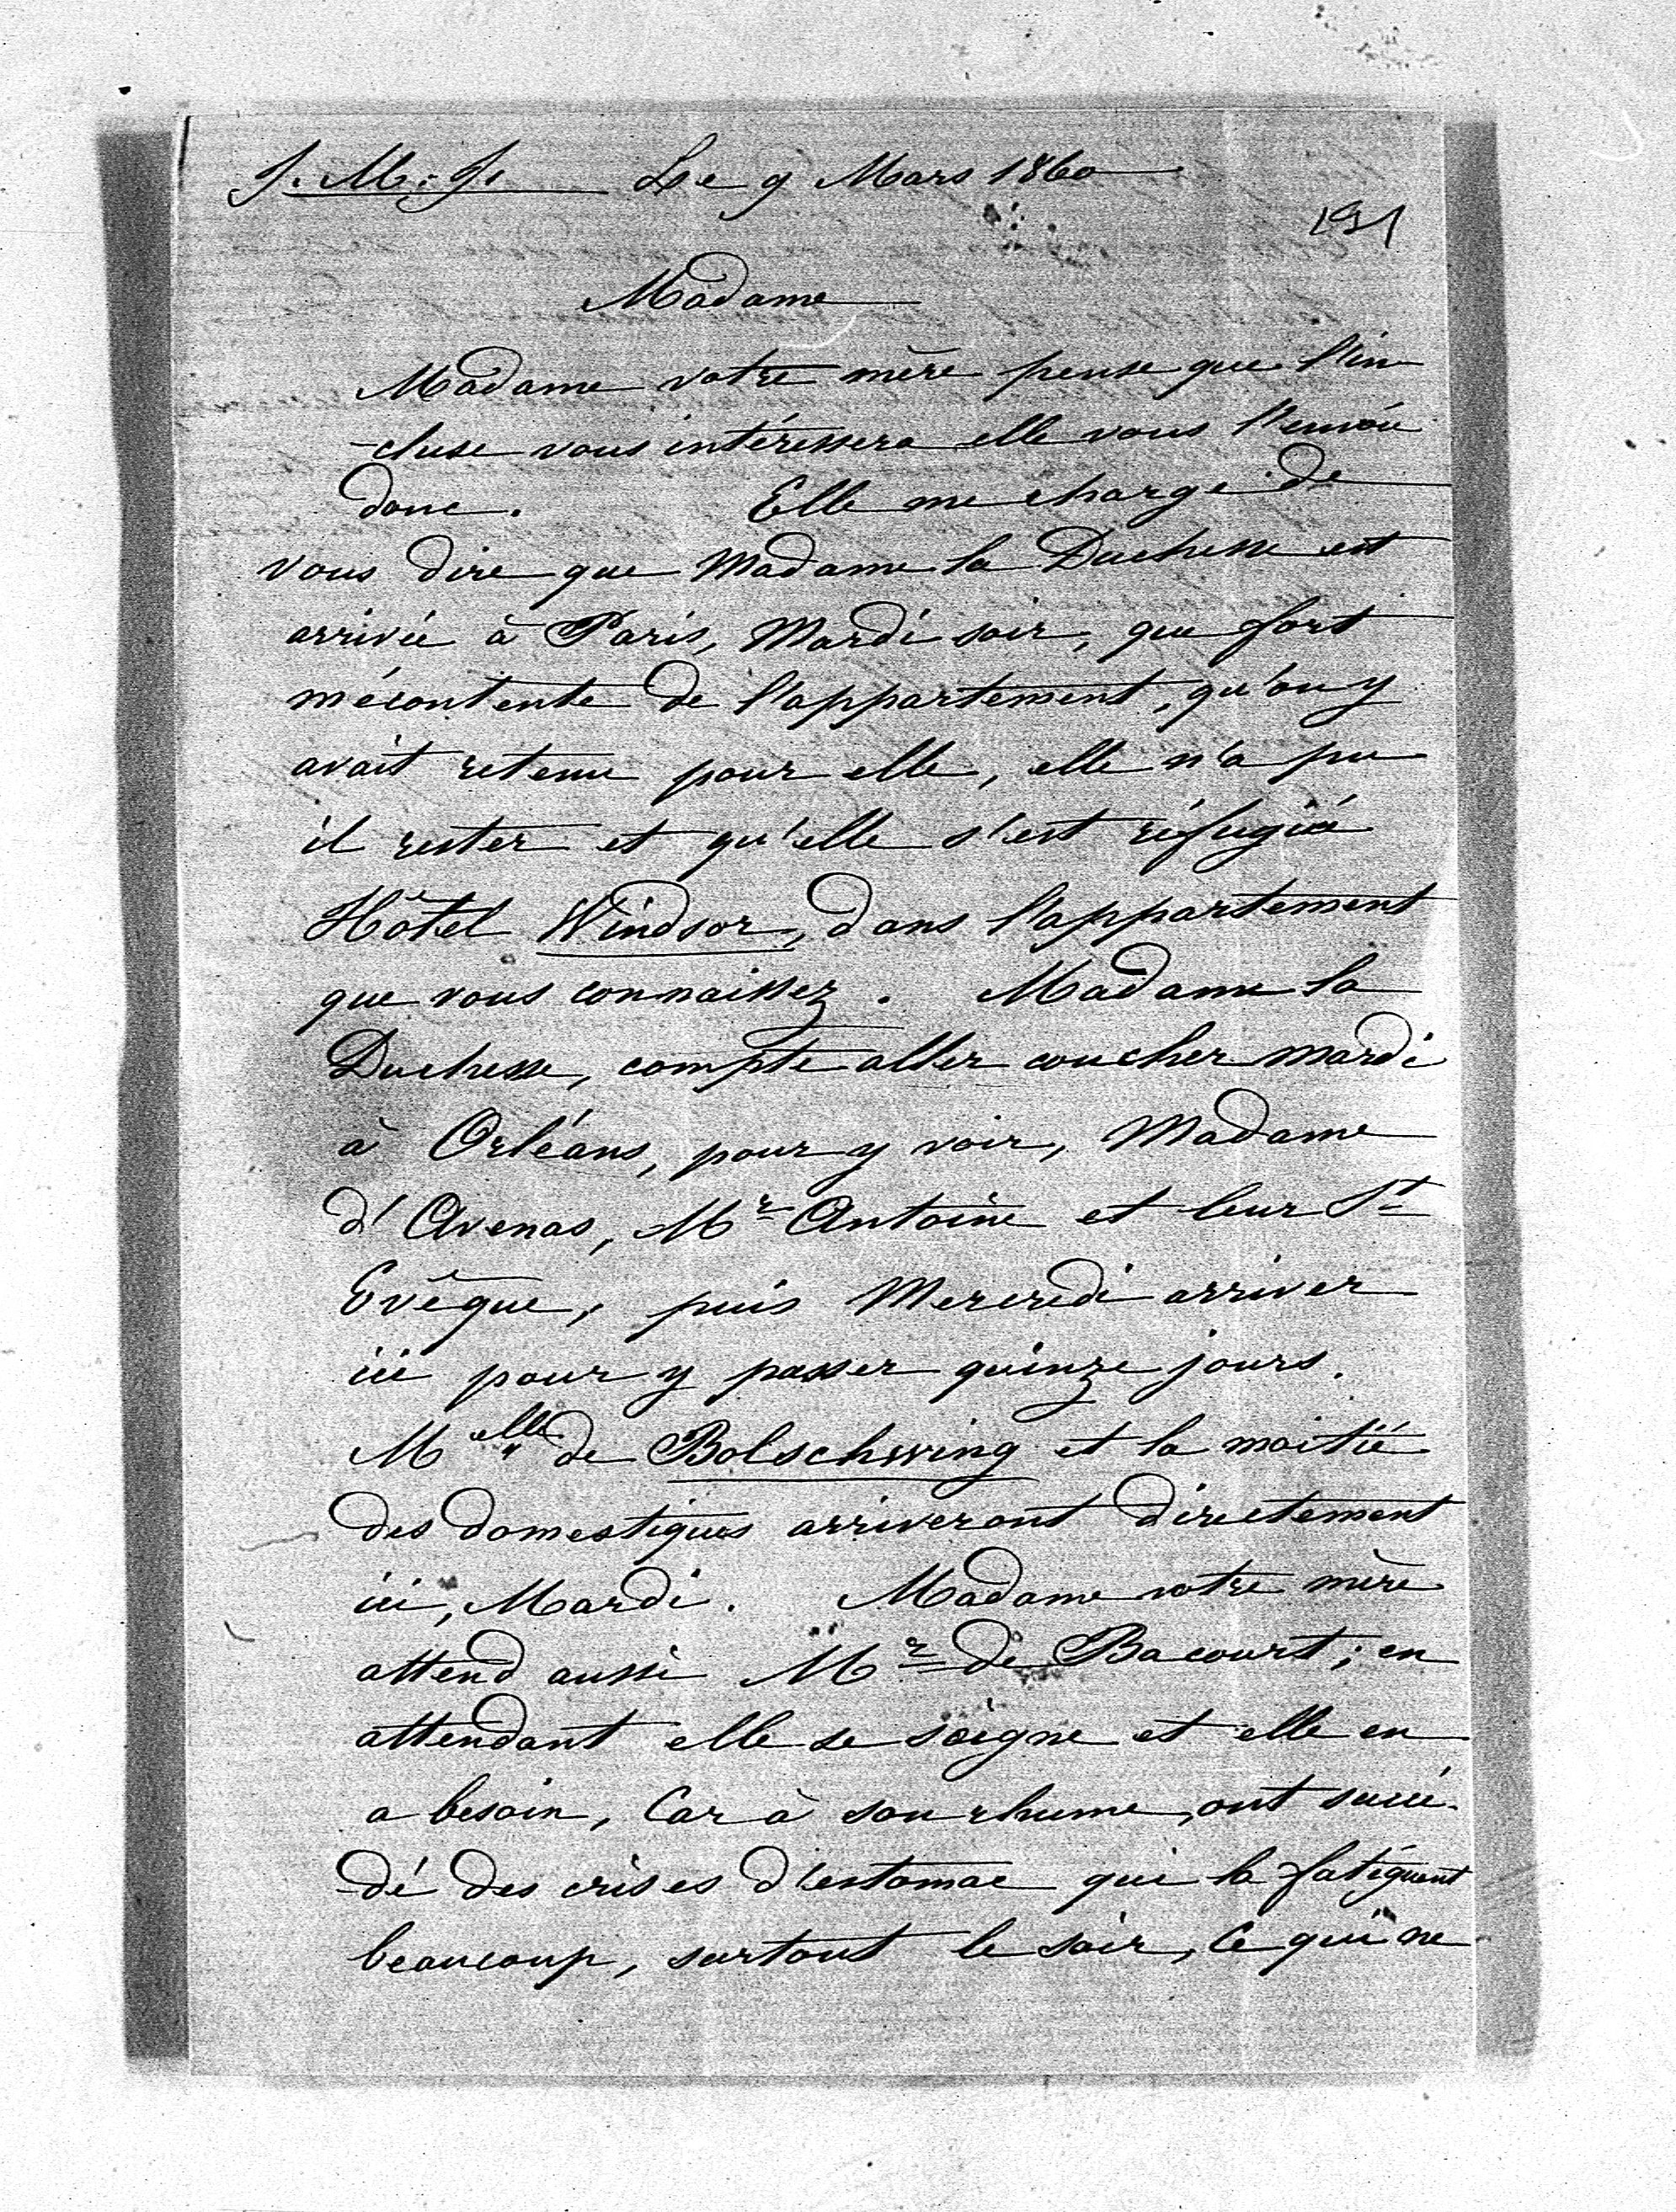 J. M. J. Le 9 Mars 1860
191
Madame
Madame votre mère pense que l'in
-cluse vous intéressera elle vous l'envoie
donc. Elle me charge de
vous dire que Madame la Duchesse est
arrivée à Paris, Mardi soir, que fort
mécontente de l'appartement, qu'on y
avait retenu pour elle, elle n'a pu
il rester et qu'elle s'est réfugiée
Hôtel Windsor, dans l'appartement
que vous connaissez. Madame la
Duchesse, compte aller coucher mardi
à Orléans, pour y voir, Madame
d'Avenas, Mr Antoine et leur St
Evêque, puis Mercredi arriver
ici pour y passer quinze jours.
Melle de Bolschwing et la moitié
des domestiques arriveront directement
ici, Mardi. Madame votre mère
attend aussi Mr de Bacourt; en
attendant elle se soigne et elle en
a besoin, Car à son rhume, ont succé-
-dé des crises d'estomac qui la fatiguent
beaucoup, surtout le soir, Ce qui ne